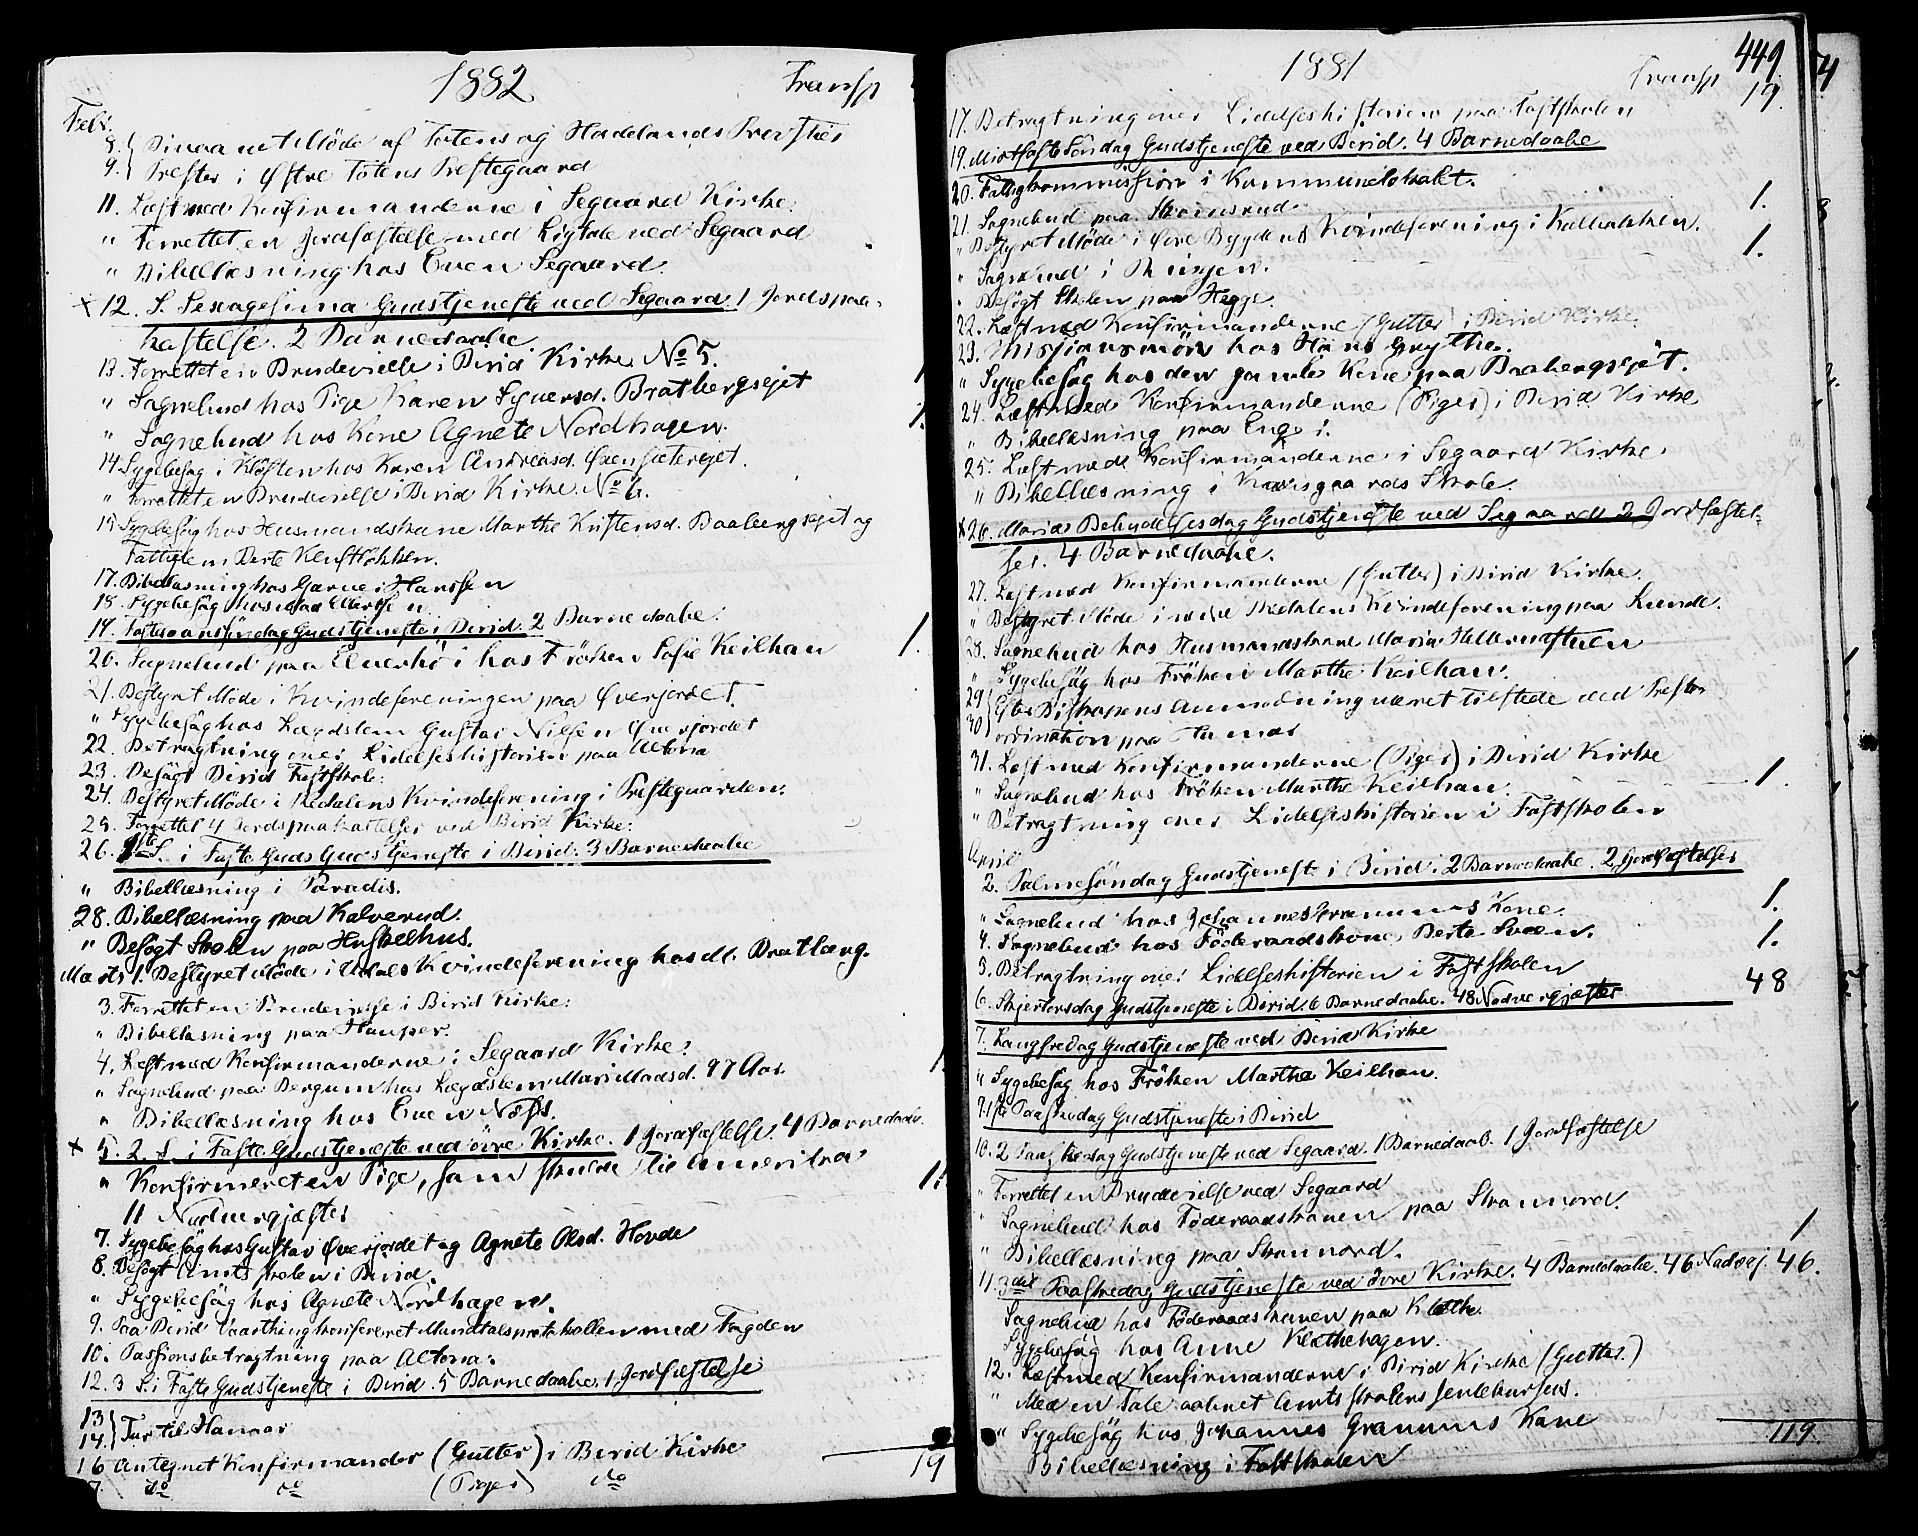 1882
Transp
Febr.
8. } Privat Møde af Totens og Hadelands Provsties
9. } Prester i Østre Totens Prestegaard
11. Læst med Konfirmanderne i Segaard Kirke.
" Forrettet en Jordfæstelse med Ligtale ved Segaard
" Bibellæsning hos Even Segaard.
x 12. S. Sexagesima Gudstjeneste ved Segaard 1 Jordspaa-
kastelse. 2 Barnedaabe.
13. Forrettet en Brudevielse i Birid Kirke No 5.
" Sognebud hos Pige Karen Syversd. Bratbergsejet 1
" Sognebud hos Kone Agnete Nordhagen. 1.
14. Sygebesøg i Kløften hos Karen Andreasd.
" Forrettet en Brudevielse i Birid Kirke. No 6.
15. Sygebesøg hos Husmandskone Marthe Kristensd. Baabergsejet og
Fattiglem Berte
17. Bibellæsning hos Garver Hanssen
18. Sygebesøg hos
19. Fastelavnssøndag Gudstjeneste i Birid. 2 Barnedaabe.
20. Sognebud paa Elverhøi hos Frøken Sofie Keilhau 1.
21. Bestyret Møde i Kvindeforeningen paa Øverjordet.
" Sygebesøg hos Lægdslem Gustav Nilsen Øverjordet
22. Betragtning over Lidelseshistorien paa Altona
23. Besøgt Birid Fastskole.
24. Bestyret Møde i Redalens Kvindeforening i Prestegaarden.
25. Forrettet 4 Jordspaakastelser ved Birid Kirke.
26. 1ste S. i Faste Guds Gudstjeneste i Birid. 3 Barnedaabe
" Bibellæsning i Paradis.
28. Bibellæsning paa Kalverud.
" Besøgt Skolen paa Huskelhus.
Marts 1. Bestyret Møde i Kvindeforening hos Bratlæng.
3. Forrettet en Brudevielse i Birid Kirke.
" Bibellæsning paa
4. Læst med Konfirmanderne i Segaard Kirke.
" Sognebud paa Bergum hos Lægdslem Mari Madsd. 97 Aar. 1
" Bibellæsning hos Even Næss.
x 5. 2. S. i Faste Gudstjeneste ved øvre Kirke. 1 Jordfæstelse. 4 Barnedaabe.
" Konfirmeret en Pige, som skulde til Amerika
11 Nadvergjæster
7. Sygebesøg hos Gustav Øverjordet og Agnete Olsd. Hovde
8. Besøgt Amtsskolen i Birid.
" Sygebesøg hos Agnete Nordhagen.
9. Paa Birid Vaarthing konfereret Mandtalsprotokollen med Fogden
10. Passionsbetragtning paa Altona.
12. 3 S. i Faste Gudstjeneste i Birid. 5 Barnedaabe. 1 Jordfæstelse
13 }
14. } Tur til Hamar
16 Antegnet Konfirmander (Gutter) i Birid Kirke
do do (Piger) do
19
1881
449
Transp 19
17. Betragtning over Lidelseshistorien paa Fastskolen
19. Midtfaste Søndag Gudstjeneste ved Birid. 4 Barnedaabe
20. Fattigkommission i Kommunelokalet.
21. Sognebud paa 1.
" Bestyret Møde i Øvre Bygdens Kvindeforening i Kalbakken.
" Sognebud i 1.
" Besøgt Skolen paa Hegge.
22. Læst med Konfirmanderne (Gutter) i Birid Kirke.
23. Missionsmøde hos Hans Grythe.
" Sygebesøg hos den gamle Kone paa Braabergsejet.
24. Læst med Konfirmanderne (Piger) i Birid Kirke
" Bibellæsning paa
25. Læst med Konfirmanderne i Segaard Kirke.
" Bibellæsning i Skole.
x 26. Mariæ Bebudelsesdag Gudstjeneste ved Segaard 2 Jordfæstel-
ser. 4 Barnedaabe.
27. Læst med Konfirmanderne (Gutter) i Birid Kirke.
" Bestyret Møde i nedre Redalens Kvindeforening paa
28. Sognebud hos Husmandskone Maria
" Sygebesøg hos Frøken Marthe Keilhau.
29 } Efter Biskopens Anmodning været tilstede ved Preste-
30 } ordination paa Hamar
31. Læst med Konfirmanderne (Piger) i Birid Kirke
" Sognebud hos Frøken Marthe Keilhau. 1.
" Betragtning over Lidelseshistorien i Fastskolen
April
2. Palmesøndag Gudstjeneste i Birid. 2 Barnedaabe. 2 Jordfæstelser
" Sognebud hos Johannes Kone. 1.
4. Sognebud hos Føderaadskone Berte 1.
5. Betragtning over Lidelseshistorien i Fastskolen
6. Skjertorsdag Gudstjeneste i Birid. 6 Barnedaabe. 48 Nadvergjæster 48
7. Langfredag Gudstjeneste ved Birid Kirke
" Sygebesøg hos Frøken Marthe Keilhau.
9. 1ste Paaskedag Gudstjeneste i Birid
10. 2 Paaskedag Gudstjeneste ved Segaard. 1 Barnedaab. 1 Jordfæstelse
" Forrettet en Brudevielse ved Segaard
" Sognebud hos Føderaadskonen paa 1
" Bibellæsning paa
11. 3die Paaskedag Gudstjeneste ved Øvre Kirke. 4 Barnedaabe. 46 Nadvgj. 46.
Sognebud hos Føderaadskonen paa
Sygebesøg hos Anne Klethehagen.
12. Læst med Konfirmanderne i Birid Kirke (Gutter.)
" Med en Tale aabnet Amtsskolens Jentekursus.
" Sygebesøg hos Johannes Kone
Bibellæsning i Fastskolen
119.